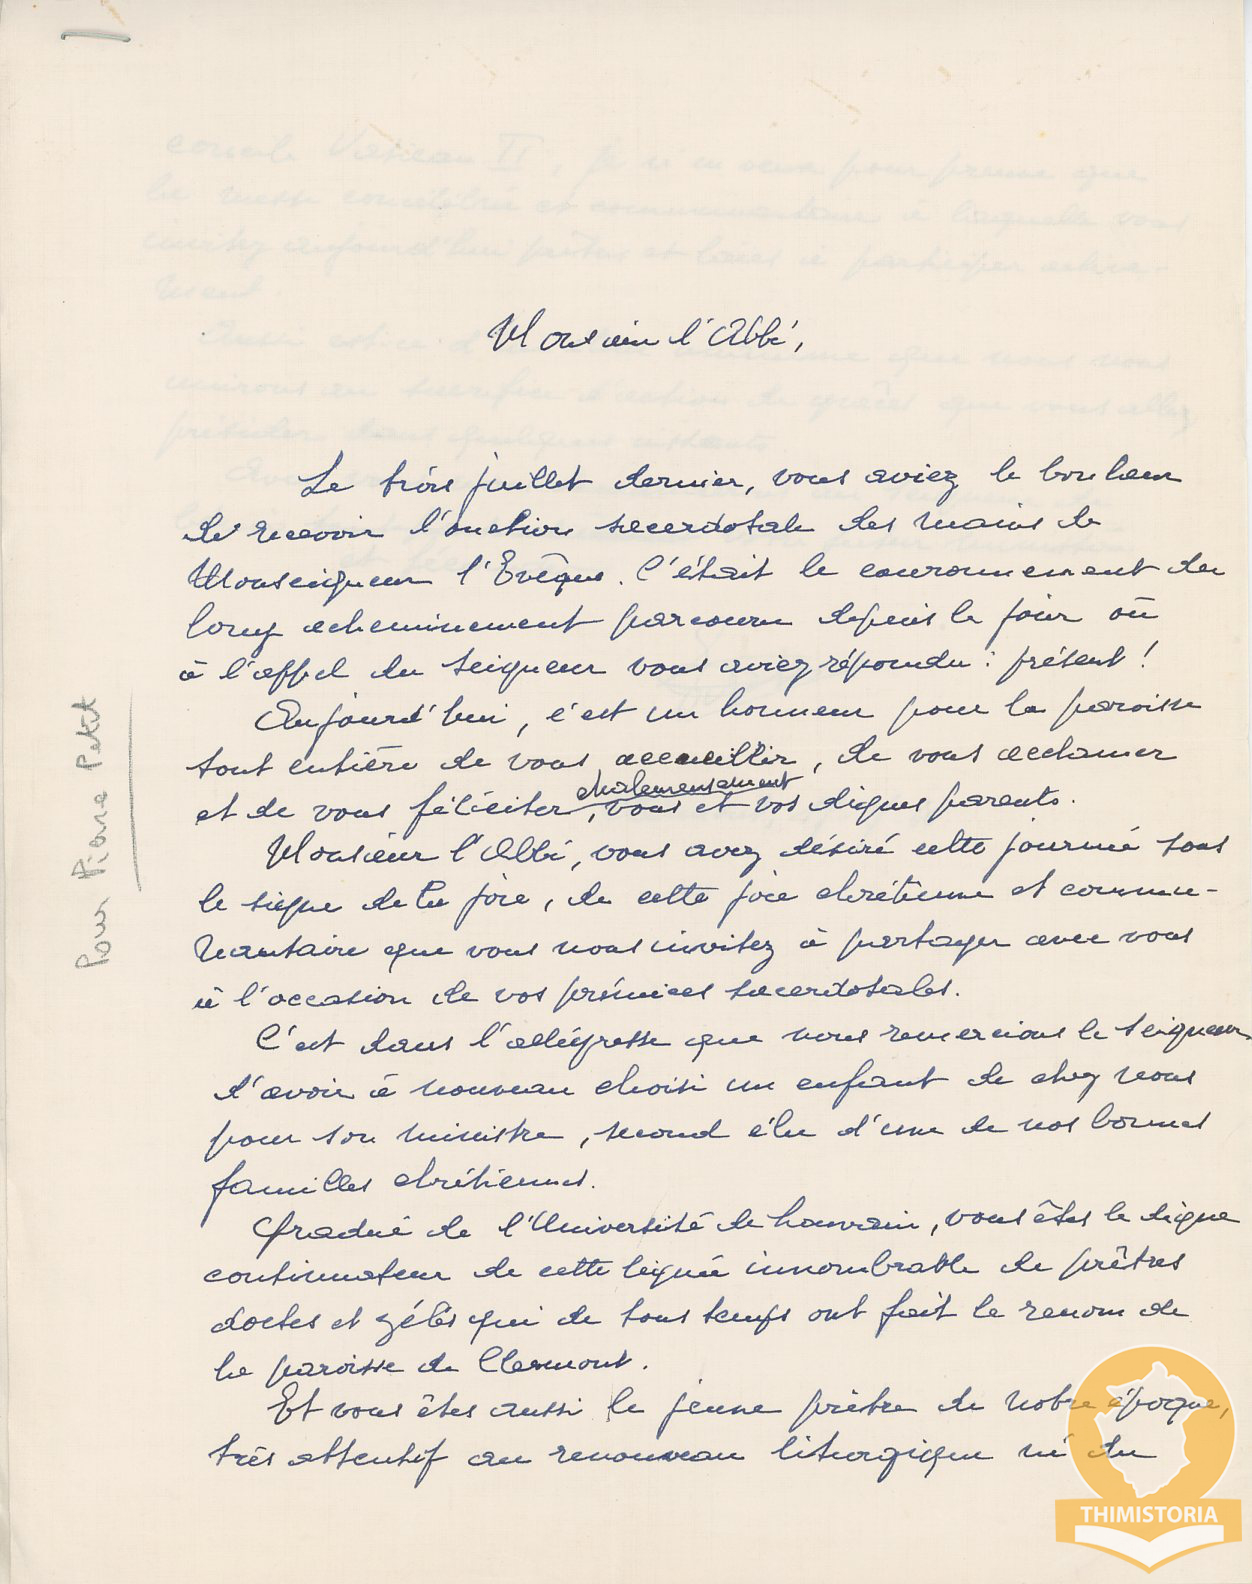 Monsieur l'Abbé,
Le trois juillet dernier, vous aviez le bonheur
de recevoir l'onction sacerdotale des mains de
Monseigneur l'Evêque. C'était le couronnement du
long acheminement parcouru depuis le jour où
à l'appel du Seigneur vous aviez répondu : présent !
Aujourd'hui, c'est un honneur pour la paroisse
tout entière de vous accueillir, de vous acclamer
chaleureusement
et de vous féliciter, vous et vos dignes parents.
Monsieur l'Abbé, vous avez désiré cette journée sous
le signe de la joie, de cette joie chrétienne et commu-
nautaire que vous nous invitez à partager avec vous
à l'occasion de vos prémices sacerdotales.
C'est dans l'allégresse que nous remercions le Seigneur
d'avoir à nouveau choisi un enfant de chez nous
pour son ministre, second élu d'une de nos bonnes
familles chrétiennes.
Gradué de l'Université de Louvain, vous êtes le digne
continuateur de cette lignée innombrable de prêtres
doctes et zélés qui de tous temps ont fait le renom de
la paroisse de Clermont.
Et vous êtes aussi le jeune prêtre de notre époque,
très attentif au renouveau liturgique né du
Pour Pierre Petit
THIMISTORIA